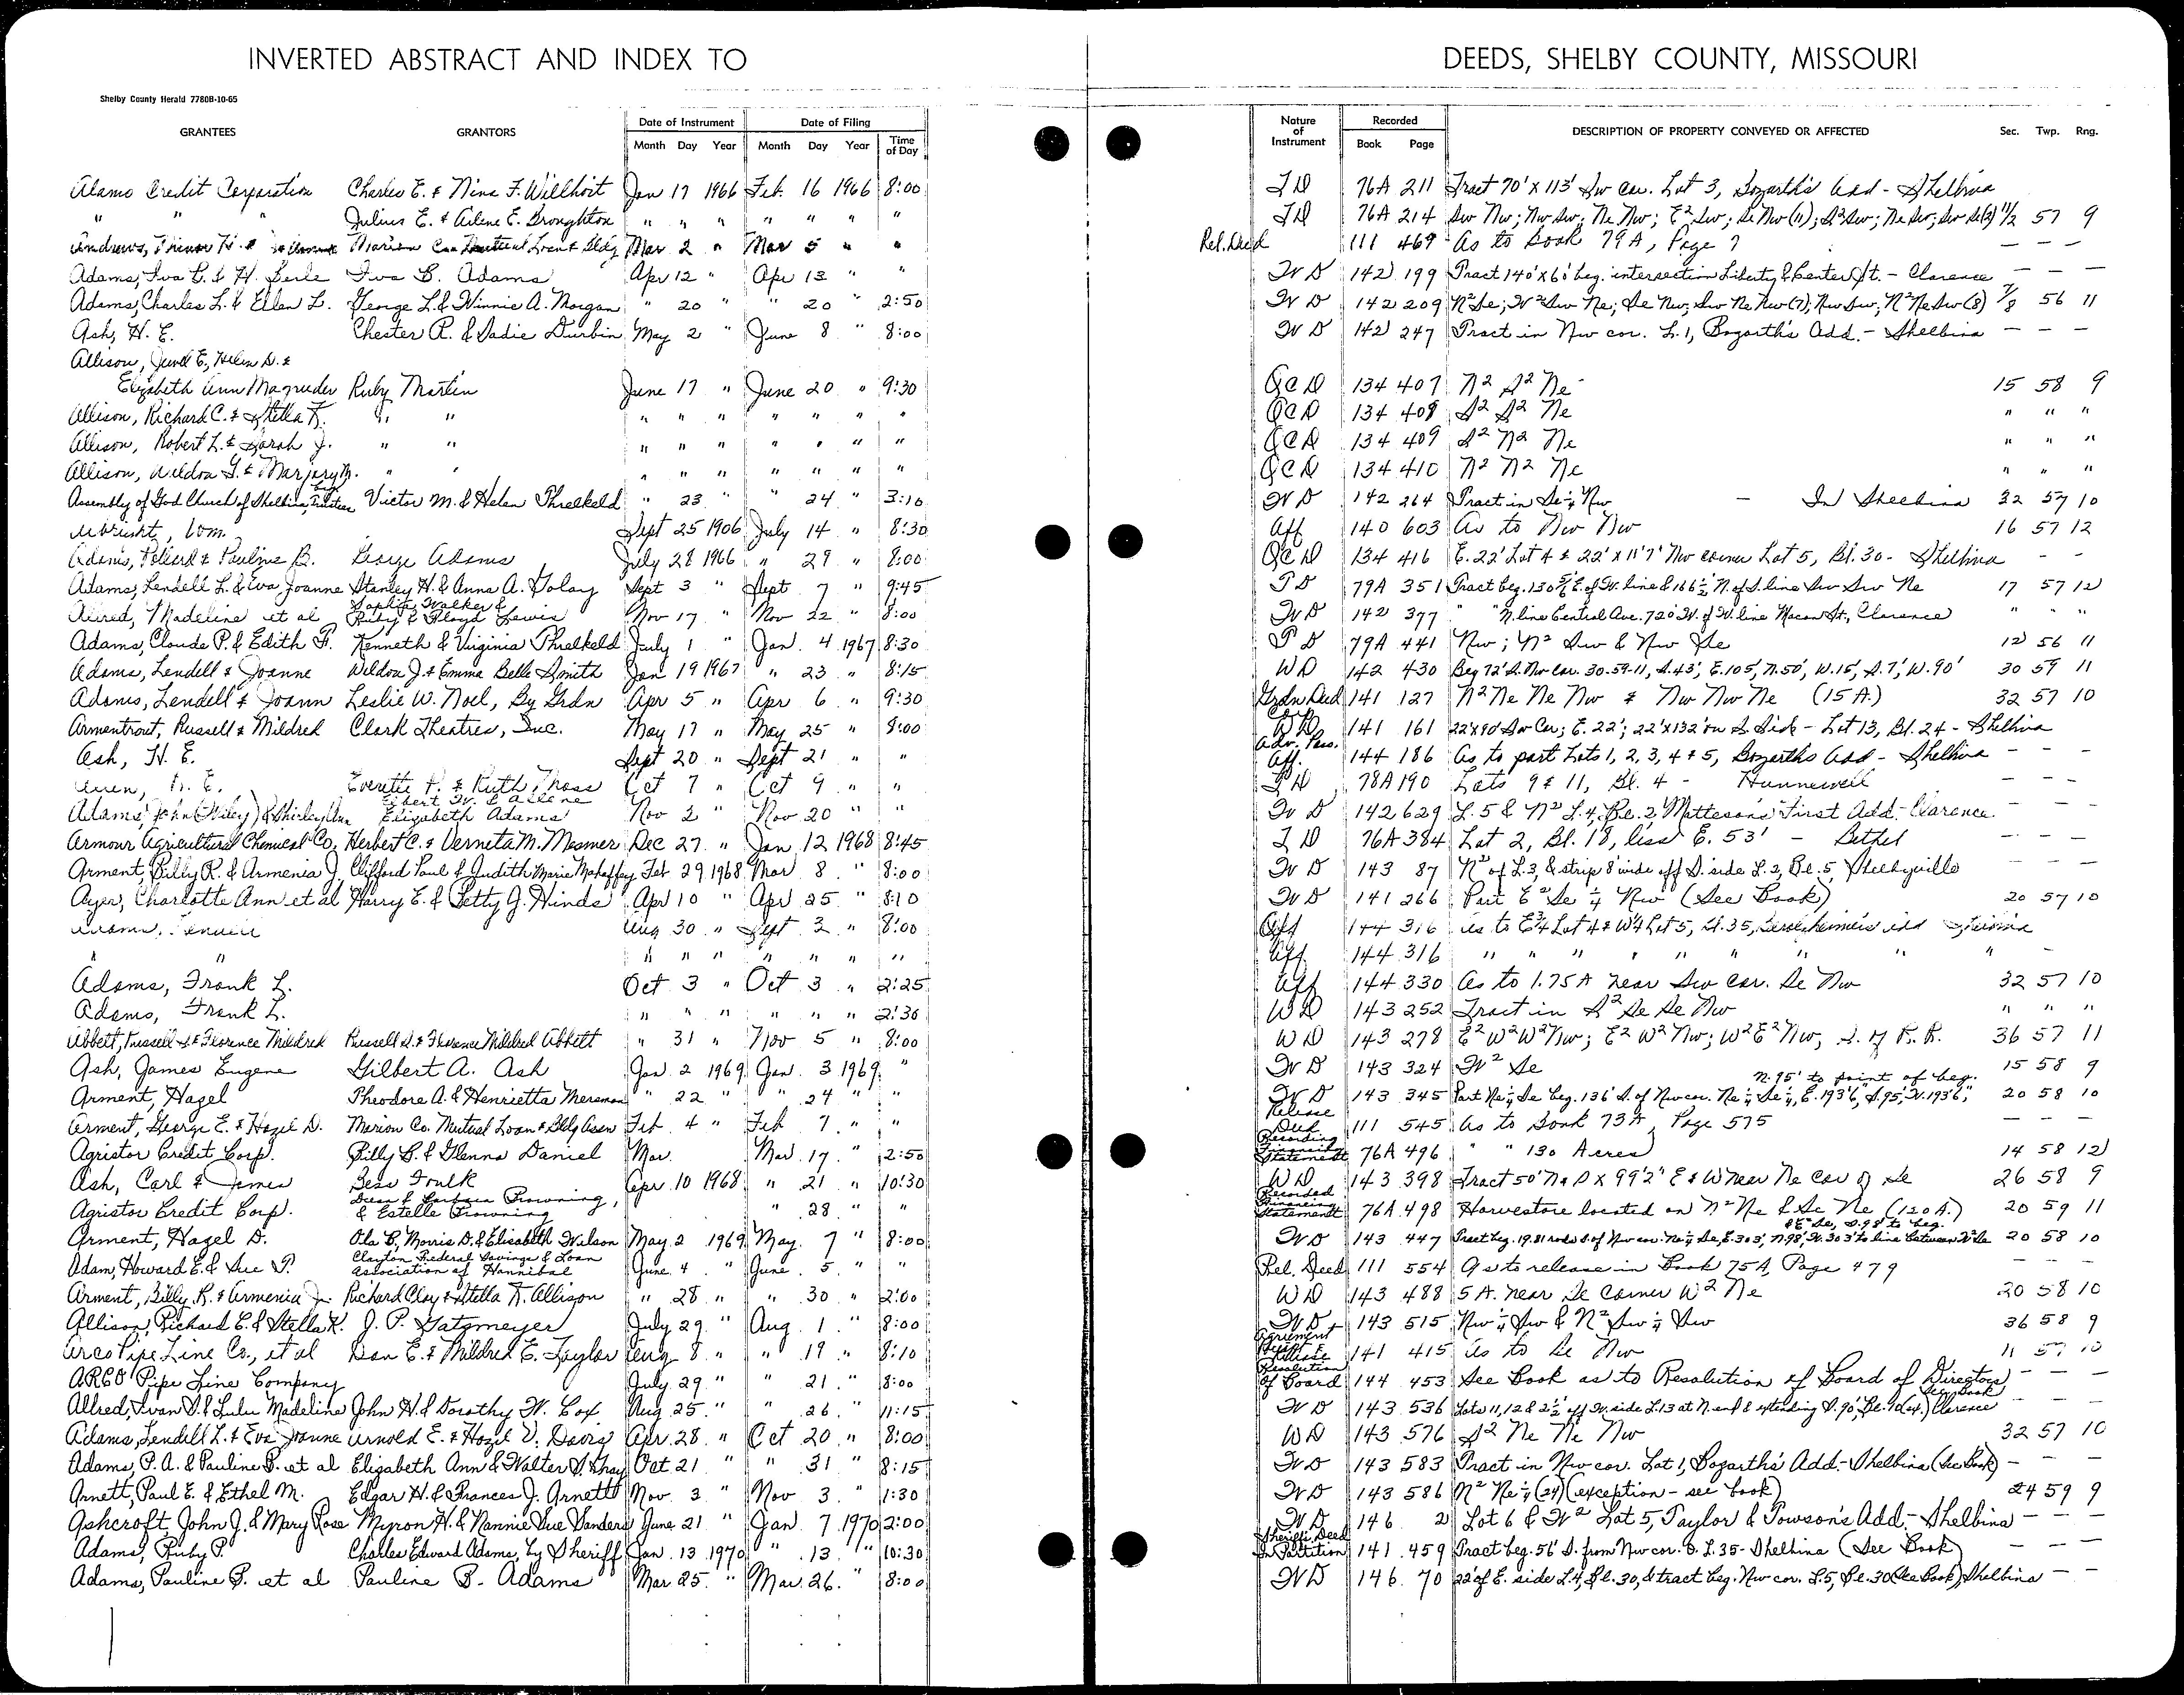 INVERTED ABSTRACT AND INDEX TO
DEEDS, SHELBY COUNTY, MISSOURI
Shelby County Herald 7780B-10-65
GRANTEES GRANTORS Date of Instrument Month Day Year Date of Filing Month Day Year Time of Day
Nature of Instrument Recorded Book Page DESCRIPTION OF PROPERTY CONVEYED OR AFFECTED Sec. Twp. Rng.
Alamo Credit Corporation Charles E. & Nina F. Willhoit Jan 17 1966 Feb. 16 1966 8:00
" " " Julius E. & Arlene E. Broughton " " " " " " "
Andrews, Mar 2 " Mar 5 " "
Adams, Iva B. & H. Berle Iva B. Adams Apr 12 " Apr 13 " "
Adams, Charles L. & Ellen L. George L. & Winnie A. Morgan " 20 " " 20 " 2:50
Ash, H. E. Chester R. & Sadie Durbin May 2 " June 8 " 8:00
Allison, Jewel E., Helen D. &
Elizabeth Ann Magruder Ruby Martin June 17 " June 20 " 9:30
Allison, Richard C. & Stella K. " " " " " " " " "
Allison, Robert L. & Sarah J. " " " " " " " " "
Allison, Weldon G. & Marjory M. " " " " " " " " "
Assembly of God Church of Shelbina, by Trustees Victor M. & Helen Threlkeld " 23 " " 24 " 3:10
Wm. Sept 25 1906 July 14 " 8:30
Adams, & Pauline B. George Adams July 28 1966 " 29 " 8:00
Adams, Lendell L. & Eva Joanne Stanley H. & Anna A. Golay Sept 3 " Sept 7 " 9:45
Allred, Madeline et al Sophia Walker & Ruby & Floyd Lewis Nov 17 " Nov 22 " 8:00
Adams, Claude P. & Edith F. Kenneth & Virginia Threlkeld July 1 " Jan. 4 1967 8:30
Adams, Lendell & Joanne Weldon J. & Emma Belle Smith Jan 19 1967 " 23 " 8:15
Adams, Lendell & Joann Leslie W. Noel, By Grdn Apr 5 " Apr 6 " 9:30
Armentrout, Russell & Mildred Clark Theatres, Inc. May 17 " May 25 " 8:00
Ash, H. E. Sept 20 " Sept 21 " "
Everette P. & Ruth Oct 7 " Oct 9 " "
Adams, John (Wiley) & Shirley Ann Elbert W. & Allene Elizabeth Adams Nov 2 " Nov 20 " "
Armour Agricultural Chemical Co. Herbert C. & Verneta M. Mesmer Dec 27 " Jan 12 1968 8:45
Arment, Billy R. & Armenia J. Clifford Paul & Judith Marie Mahaffey Feb 29 1968 Mar 8 " 8:00
Ayer, Charlotte Ann et al Harry E. & Betty J. Hinds Apr 10 " Apr 25 " 8:10
Aug 30 " Sept 3 " 8:00
" " " " " " " " "
Adams, Frank L. Oct 3 " Oct 3 " 2:25
Adams, Frank L. " " " " " " 2:30
Abbett, Russell S. & Florence Mildred Russell S. & Florence Mildred Abbett " 31 " Nov 5 " 8:00
Ash, James Eugene Gilbert A. Ash Jan. 2 1969 Jan. 3 1969 "
Arment, Hazel Theodore A. & Henrietta Mersman " 22 " " 24 " "
Arment, George E. & Hazel D. Marion Co. Mutual Loan & Bldg Assn Feb 4 " Feb 7 " "
Agristor Credit Corp. Billy B. & Glenna Daniel Mar. Mar 17 " 2:50
Ash, Carl & James Bess Foulk Apr. 10 1968 " 21 " 10:30
Agristor Credit Corp. Dean & Barbara Browning, & Estelle Browning " 28 " "
Arment, Hazel D. Ola B., Morris D. & Elisabeth Wilson May 2 1969 May 7 " 8:00
Adam, Howard E. & Sue P. Clayton Federal Savings & Loan Association of Hannibal June 4 " June 5 " "
Arment, Billy R. & Armenia J. Richard Clay & Stella K. Allison " 28 " " 30 " 2:00
Allison, Richard C. & Stella K. J. P. Gatzmeyer July 29 " Aug. 1 " 8:00
Arco Pipe Line Co., et al Dan E. & Mildred E. Taylor Aug 8 " " 19 " 8:10
ARCO Pipe Line Company July 29 " " 21 " 8:00
Allred, Ivan D. & Lulu Madeline John H. & Dorothy W. Cox Aug 25 " " 26 " 11:15
Adams, Lendell L. & Eva Joanne Arnold E. & Hazel V. Davis Apr. 28 " Oct 20 " 8:00
Adams, P. A. & Pauline B. et al Elizabeth Ann & Walter S. Oct 21 " " 31 " 8:15
Arnett, Paul E. & Ethel M. Edgar H. & Frances J. Arnett Nov. 3 " Nov 3 " 1:30
Ashcroft John J. & Mary Rose Myron H. & Nannie Sue Sanders June 21 " Jan 7 1970 2:00
Adams, Ruby P. Charles Edward Adams, by Sheriff Jan. 13 1970 " 13 " 10:30
Adams, Pauline B. et al Pauline B. Adams Mar 25 " Mar 26 " 8:00
T D 76A 211 Tract 70' X 113' Sw cor. Lot 3, Bozarth's Add - Shelbina
T D 76A 214 Sw Nw; Nw Sw; Ne Nw; E² Sw; Se Nw (11); S² Sw; Ne Sw; Sw Se (2) 11/2 57 9
Rel. Deed 111 469 As to Book 79A, Page 7 — — —
W D 142 199 Tract 140' x 60' beg. intersection Liberty & Center St. - Clarence — — —
W D 142 209 N² Se; W² Sw Ne; Se Nw; Sw Ne Nw (7); Nw Sw; N² Ne Sw (8) 7/8 56 11
W D 142 247 Tract in Nw cor. L. 1, Bozarth's Add. - Shelbina — — —
Q C D 134 407 N² S² Ne 15 58 9
Q C D 134 408 S² S² Ne " " "
Q C D 134 409 S² N² Ne " " "
Q C D 134 410 N² N² Ne " " "
W D 142 264 Tract in Se ¼ Nw - In Shelbina 32 57 10
Aff 140 603 As to Nw Nw 16 57 12
Q C D 134 416 E. 22' Lot 4 & 22' x 11'7" Nw corner Lot 5, Bl. 30 - Shelbina - -
T D 79A 351 Tract beg. E. of W. line & 166½ N. of S. line Sw Sw Ne 17 57 12
W D 142 377 " " N. line Central Ave. 720' W. of W. line Macon St., Clarence " " "
T D 79A 441 Nw; N² Sw & Nw Se 12 56 11
W D 142 430 Beg 72' S. Nw Cor. 30-59-11, S. 43', E. 105', N. 50', W. 15', S. 7', W. 90' 30 59 11
Grdn Deed 141 127 N² Ne Ne Nw & Nw Nw Ne (15 A.) 32 57 10
W D 141 161 22'x90' Sw Cor; E. 22'; 22'x132' on S. Side - Lot 13, Bl. 24 - Shelbina
Adv. Poss. Aff. 144 186 As to part Lots 1, 2, 3, 4 & 5, Bozarths Add - Shelbina — — —
T D 78A 190 Lots 9 & 11, Bl. 4 - Hunnewell — — —
W D 142 629 L. 5 & N² L. 4, Bl. 2, Matteson's First Add - Clarence — — —
T D 76A 384 Lot 2, Bl. 18, less E. 53' - Bethel — — —
W D 143 87 N² of L. 3, & strip 8' wide off S. side L. 2, Bl. 5, Shelbyville — — —
W D 141 266 Part E² Se ¼ Nw (See Book) 20 57 10
Aff 144 316 As to E¾ Lot 4 & W¼ Lot 5, Bl. 35, -
Aff 144 316 " " " " " " " " -
Aff 144 330 As to 1.75 A near Sw cor. Se Nw 32 57 10
W D 143 252 Tract in S² Se Se Nw " " "
W D 143 278 E² W² W² Nw; E² W² Nw; W² E² Nw, S. of R. R. 36 57 11
W D 143 324 W² Se 15 58 9
N. 95' to point of beg.
W D 143 345 Part Ne ¼ Se beg. 136' S. of Nw cor. Ne ¼ Se ¼, E. 193'6", S. 95', W. 193'6", 20 58 10
Release Deed 111 545 As to Book 73A, Page 575 — — —
Recording Financing Statement 76A 496 " " 130 Acres 14 58 12
W D 143 398 Tract 50' N & S X 99'2" E & W near Ne Cor of Se 26 58 9
Recorded Financing Statement 76A 498 Harvestore located on N² Ne & Se Ne (120 A.) 20 59 11
W D 143 447 Tract beg. 19.81 rods S. of Nw cor. Ne ¼ Se, E. 303', N. 98', W. 303' to line between 20 58 10
Rel. Deed 111 554 As to release in Book 75A, Page 479 — — —
W D 143 488 5 A. near Se Corner W² Ne 20 58 10
W D 143 515 Nw ¼ Sw & N² Sw ¼ Sw 36 58 9
Agreement 141 415 As to Se Nw 11 57 10
Resolution of Board 144 453 See Book as to Resolution of Board of Directors — — —
W D 143 536 Lots 11, 12 & 2½' off W. side L. 13 at N. end & extending S. 90', Clarence See Book — — —
W D 143 576 S² Ne Ne Nw 32 57 10
W D 143 583 Tract in Nw cor. Lot 1, Bozarth's Add. - Shelbina (See Book) — — —
W D 143 586 N² Ne ¼ (24) (exception - see book) 24 59 9
W D 146 2 Lot 6 & W² Lot 5, Taylor & Towson's Add. - Shelbina — — —
Sheriff's Deed In Partition 141 459 Tract beg. 56' S. from Nw cor. L. 35 - Shelbina (See Book) — — —
W D 146 70 22' of E. side L. 4, Bl. 30, & tract beg. Nw cor. L. 5, Bl. 30 (See Book) Shelbina — —